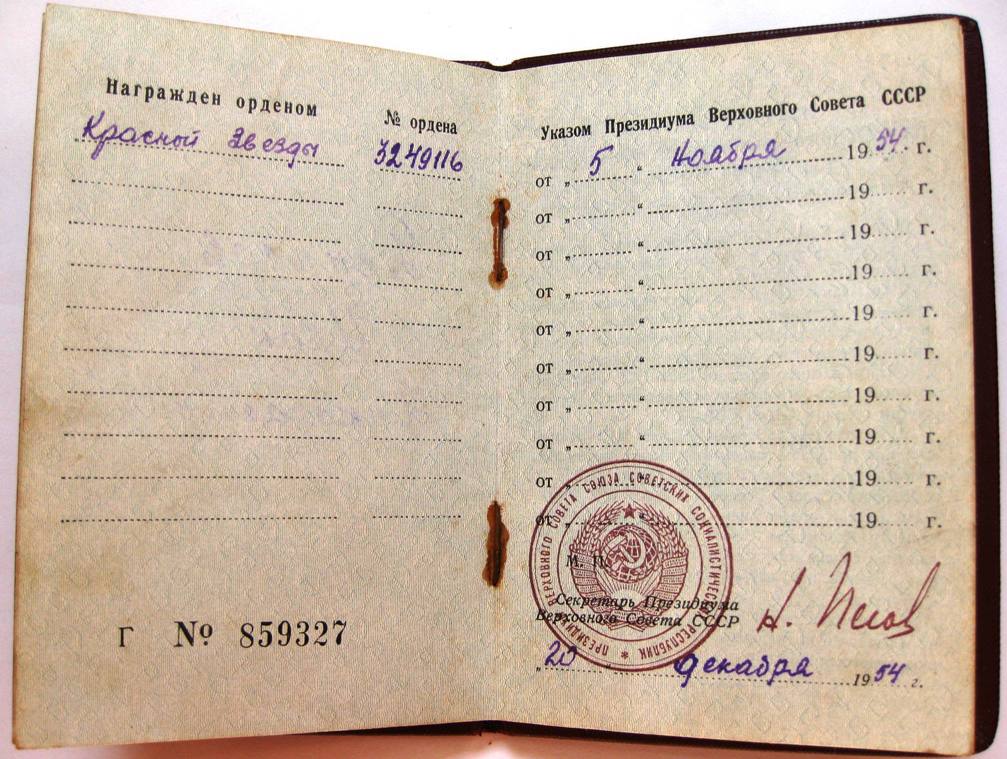 Награжден орденом
№ ордена
Красной Звезды 3249116
Г № 859327
Указом Президиума Верховного Совета СССР
от „ 5 “ Ноября 1954 г.
от „ “ 19 г.
от „ “ 19 г.
от „ “ 19 г.
от „ “ 19 г.
от „ “ 19 г.
от „ “ 19 г.
от „ “ 19 г.
от „ “ 19 г.
от „ “ 19 г.
ПРЕЗИДИУМ ВЕРХОВНОГО СОВЕТА СОЮЗА СОВЕТСКИХ СОЦИАЛИСТИЧЕСКИХ РЕСПУБЛИК *
М. П.
Секретарь Президиума
Верховного Совета СССР
„ 20 “ декабря 1954 г.